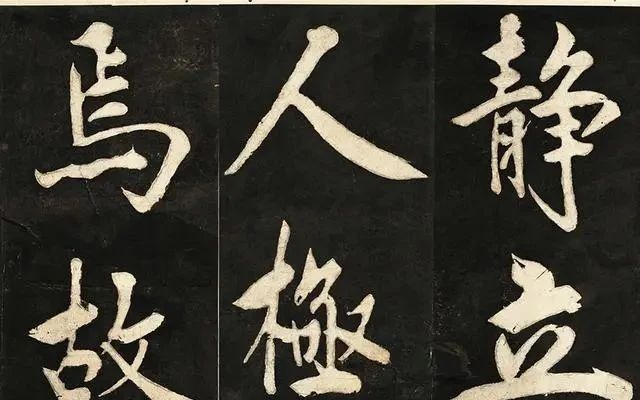 静立
人極
焉故